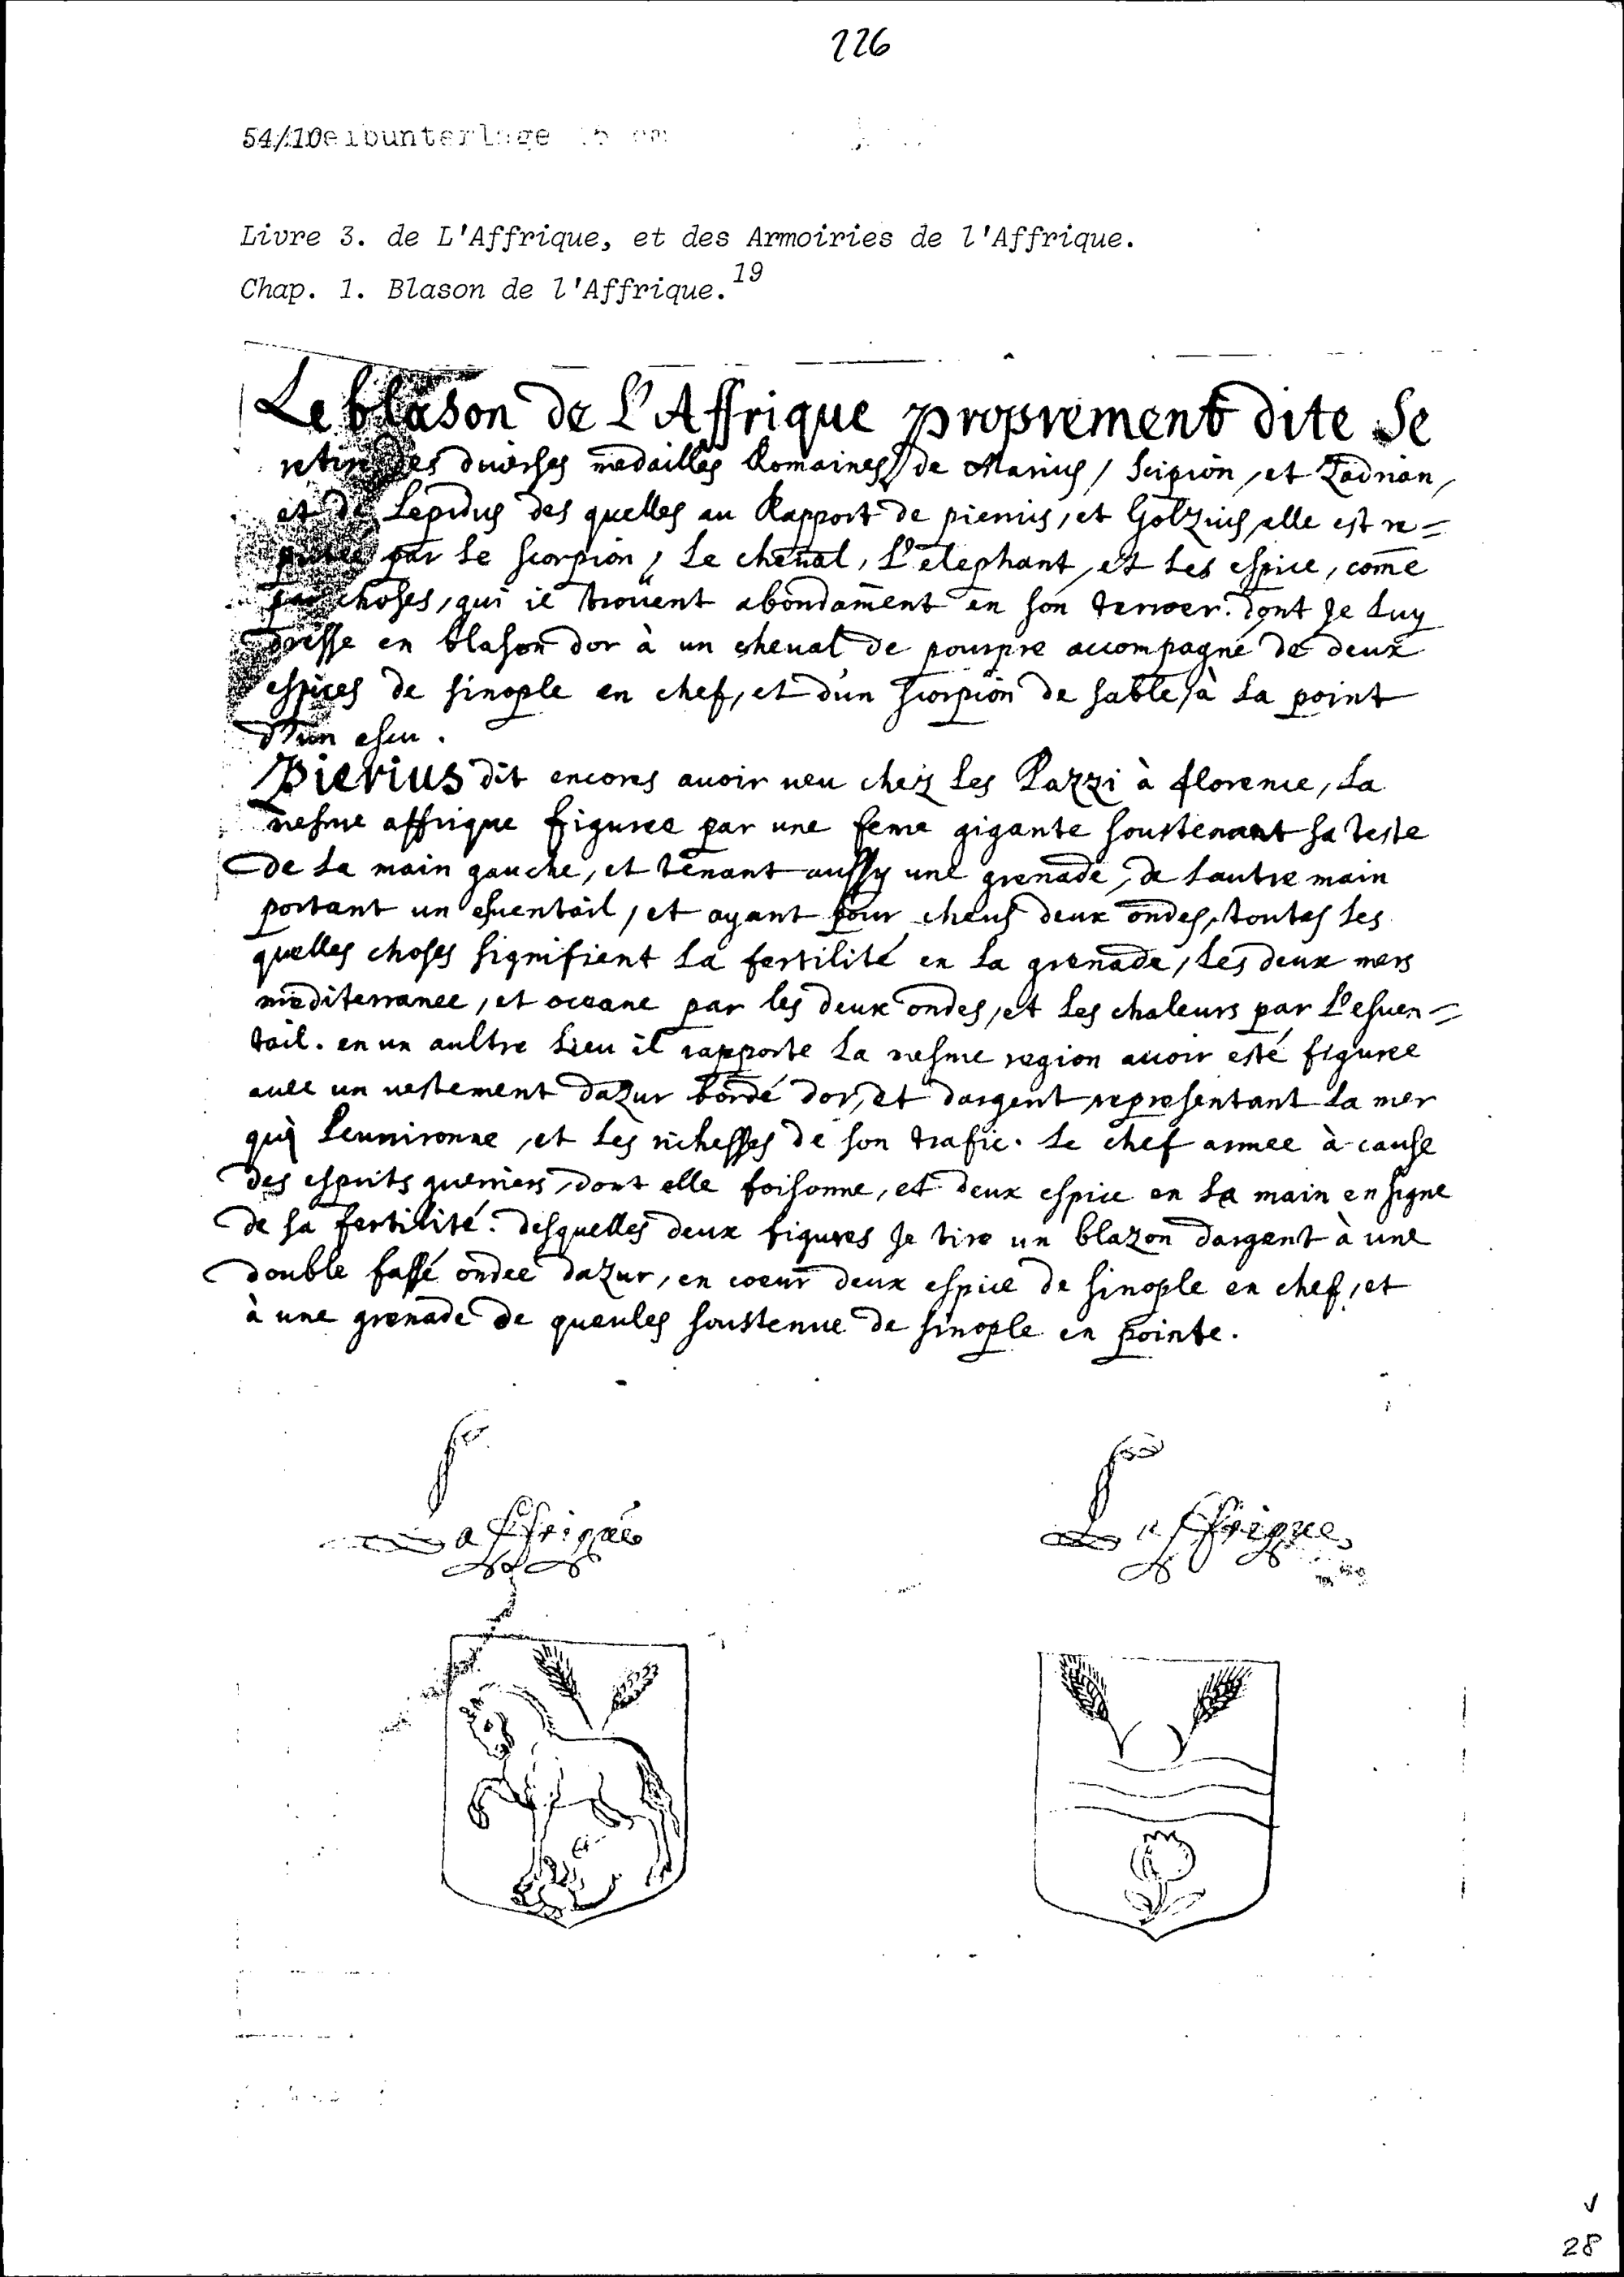 226
54/10
Livre 3. de L'Affrique, et des Armoiries de l'Affrique.
Chap. 1. Blason de l'Affrique.19
Le blason de L'Affrique proprement dite se
retire des diverses medailles Romaines de Marius, Scipion, et
et de Lepidus des quelles au Rapport de pierius, et Golzius, elle est re=
par le scorpion, Le cheual, L'elephant, et Les espice, come
par choses, qui se trouent abondament en son terroer. dont Je Luy
dresse en blason dor à un cheual de pourpre accompagné de deux
espices de sinople en chef, et d'un scorpion de sable, à La point
d'un escu.
Pierius dit encores auoir ueu chez Les Pazzi à florence, La
mesme affrique figuree par une feme gigante soustenant sa teste
de La main gauche, et tenant aussy une grenade, de Lautre main
portant un esuentail, et ayant pour deux ondes, toutes Les
quelles choses signifient La fertilité en La grenade, Les deux mers
mediterranee, et oceane par les deux ondes, et Les chaleurs par L'esuen=
tail. en un aultre Lieu il rapporte La mesme region auoir esté figuree
auec un uestement dazur bordé dor, et dargent representant La mer
qui Leunironne, et Les richesses de son trafic. Le chef armee à cause
des esprits guerriers, dont elle foisonne, et deux espice en La main en signe
de sa fertilité. desquelles deux figures Je tire un blazon dargent à une
double fassé ondee dazur, en coeur deux espice de sinople en chef, et
à une grenade de gueules soustenue de sinople en pointe.
Laffrique
Laffrique
28